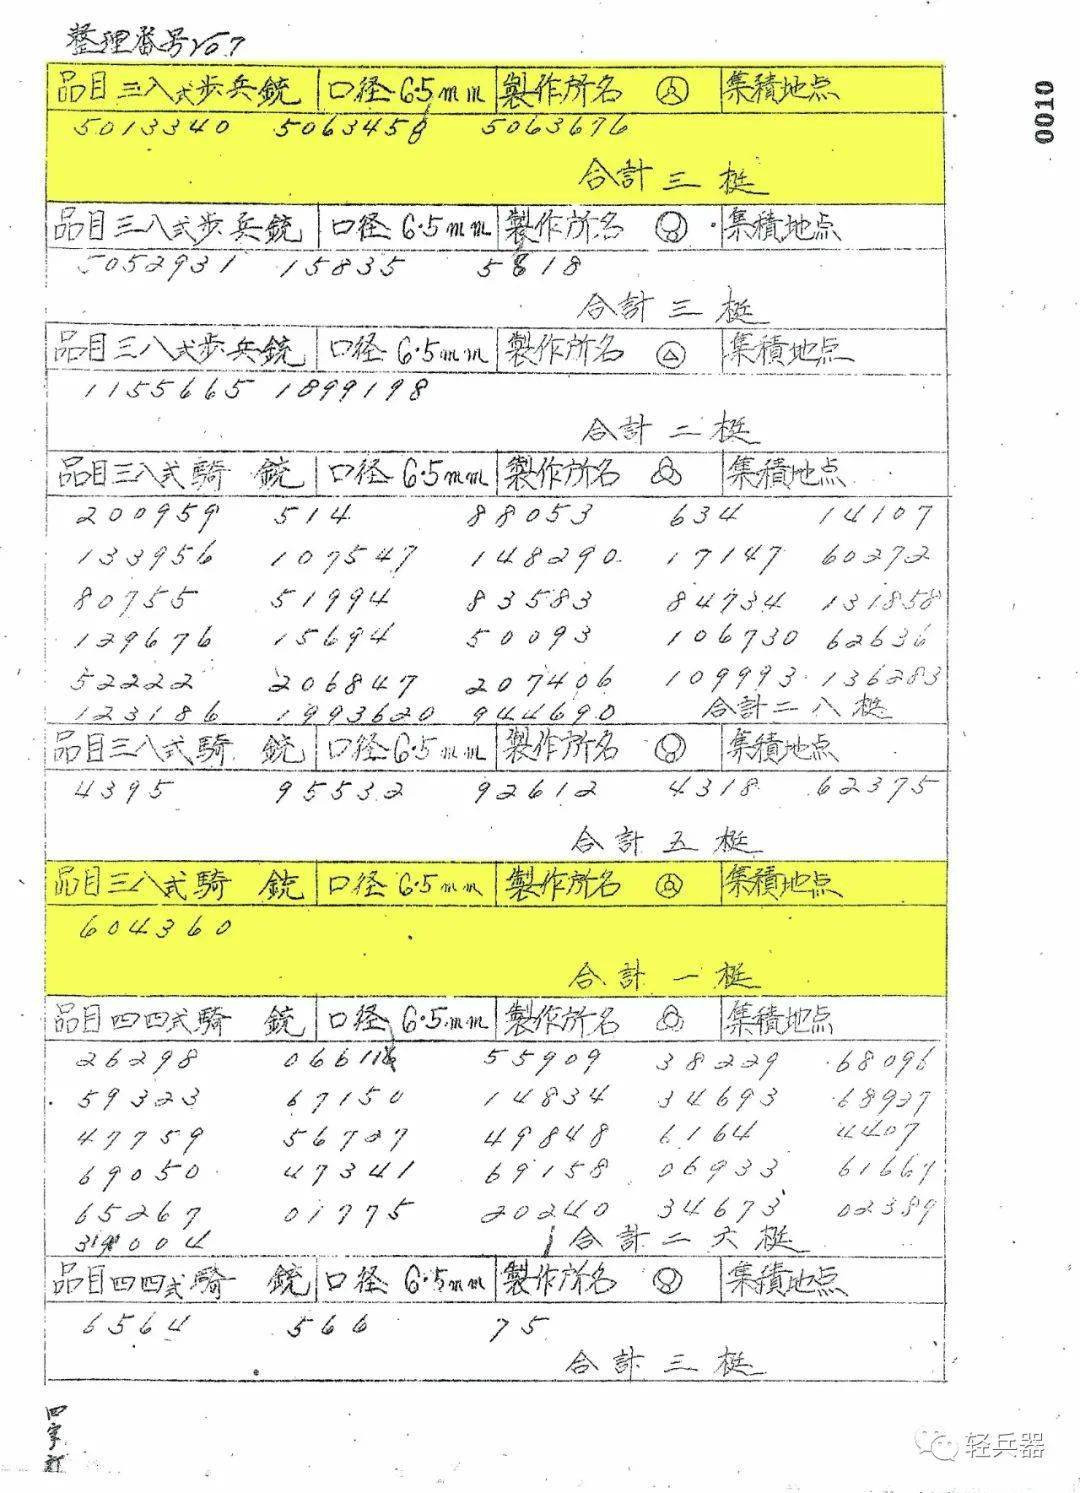 整理番号
0010
品目 三八式歩兵銃 口径 6.5mm 製作所名 集積地点
5013340 5063458 5063676
合計 三 梃
品目 三八式歩兵銃 口径 6.5mm 製作所名 集積地点
5052931 15835 5818
合計 三 梃
品目 三八式歩兵銃 口径 6.5mm 製作所名 集積地点
1155665 1899198
合計 二 梃
品目 三八式騎 銃 口径 6.5mm 製作所名 集積地点
200959 514 88053 634 14107
133956 107547 148290 17147 60272
80755 51994 83583 84734 131858
129676 15694 50093 106730 62636
52222 206847 207406 109993 136283
123186 1993620 944690 合計 二八 梃
品目 三八式騎 銃 口径 6.5mm 製作所名 集積地点
4395 95532 92612 4318 62375
合計 五 梃
品目 三八式騎 銃 口径 6.5mm 製作所名 集積地点
604360
合計 一 梃
品目 四四式騎 銃 口径 6.5mm 製作所名 集積地点
26298 55909 38229 68096
59323 67150 14834 34693 68927
47759 56727 49848 6164 4407
69050 47341 69158 06933 61667
65267 01775 20240 34673 02389
合計 二六 梃
品目 四四式騎 銃 口径 6.5mm 製作所名 集積地点
6564 566 75
合計 三 梃
四字訂
轻兵器